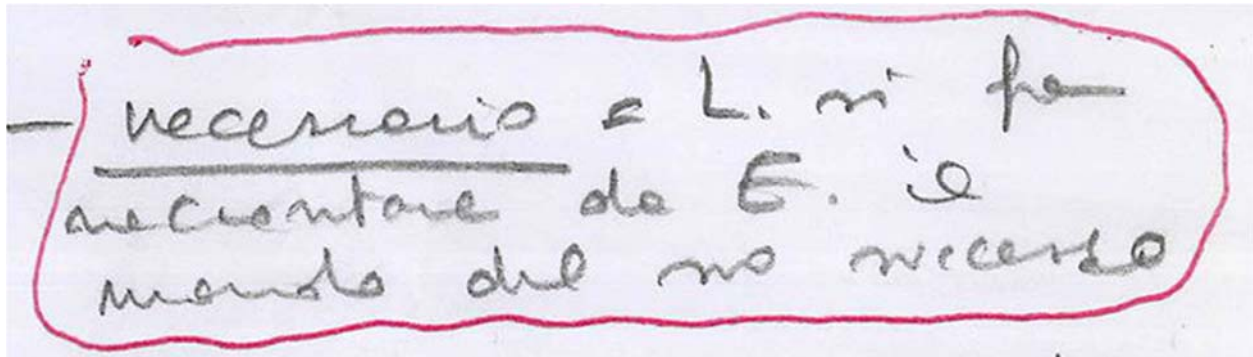 - necessario = L. si fa
raccontare da E. il
mondo del suo successo